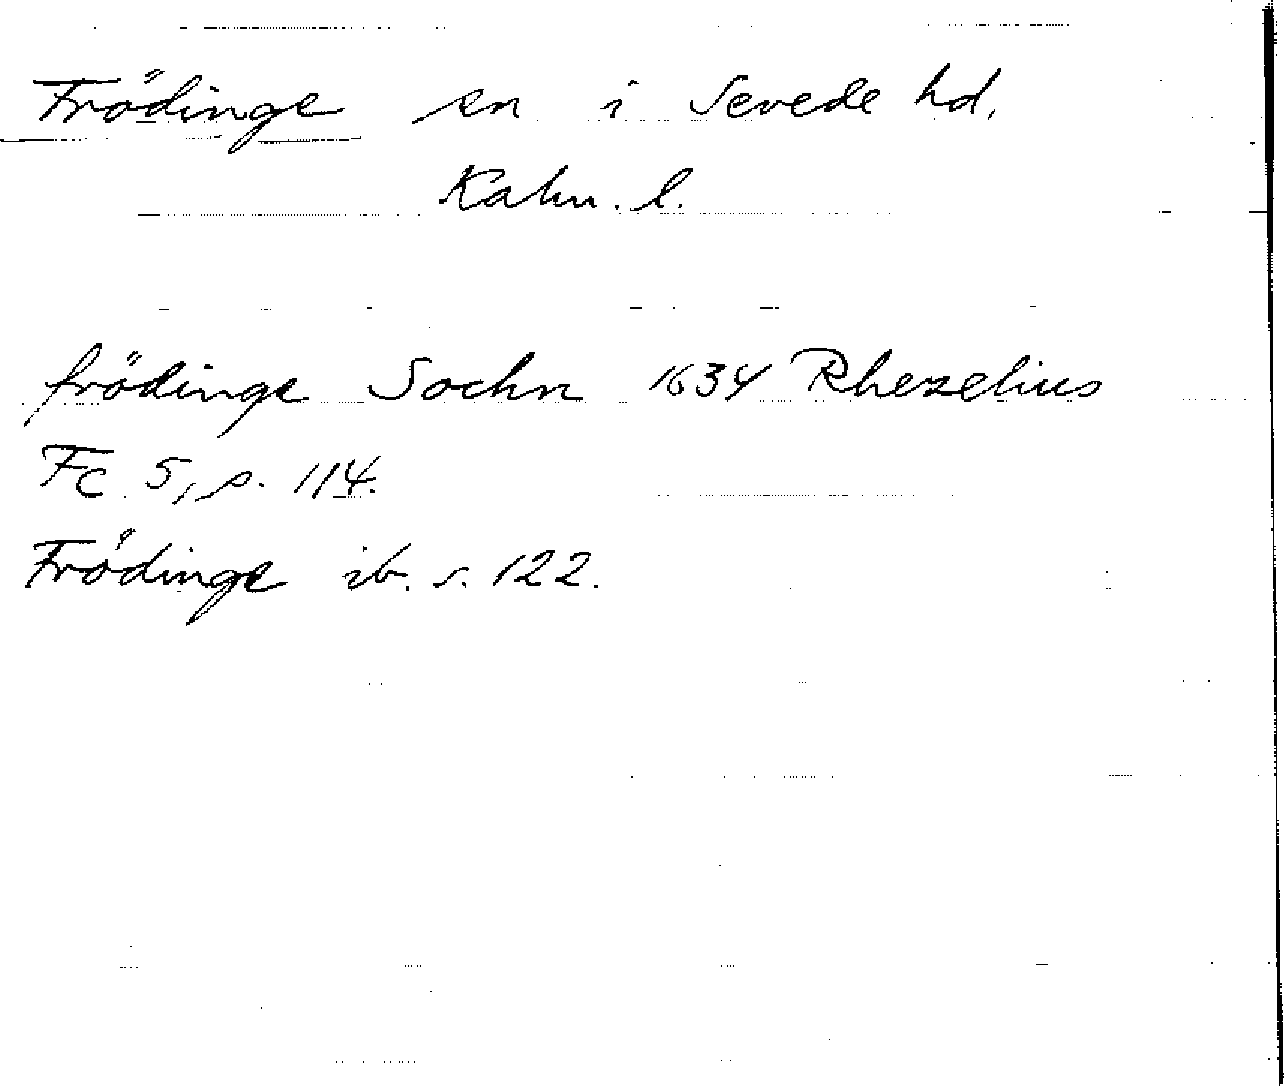 Frödinge sn i Sevede hd.
Kalm. l.
frödinge Sochn 1634 Rhezelius
Fc 5, s. 114.
Frödinge ib. s. 122.